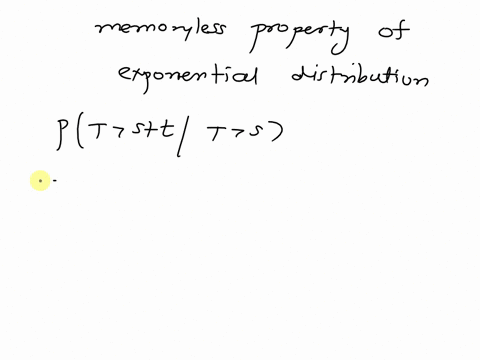 memoryless property of
exponential distribution
P(T>s+t/ T>s)